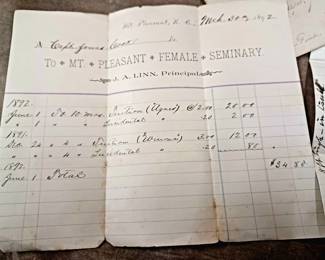 Mt. Pleasant, N. C., Mch 30th 1892
A Capt Jonas Cook Dr.
TO MT. PLEASANT FEMALE SEMINARY.
J. A. LINN, Principal.
1892.
June 1 To 10 mos. Tuition (Agnes) @ 2.00 20.00
" " " " Incidental " .20 2.00
1891.
Dec. 24 " 4 " Tuition 3.00 12.00
" " " " Incidental .20 .80
1892.
June 1 Total $34.80